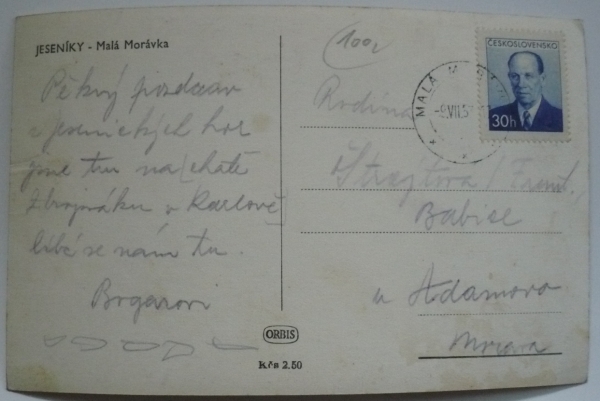 JESENÍKY - Malá Morávka
Pěkný pozdrav
z jesenických hor
jsme tu na chatě
Zbrojováku v Karlově
líbí se nám tu.
Bogarovi
100,
ČESKOSLOVENSKO
30h
MALÁ M
-8.VII.5
Rodina
Strajtova / Frant.
Babice
u Adamova
Morava
ORBIS
Kčs 2.50